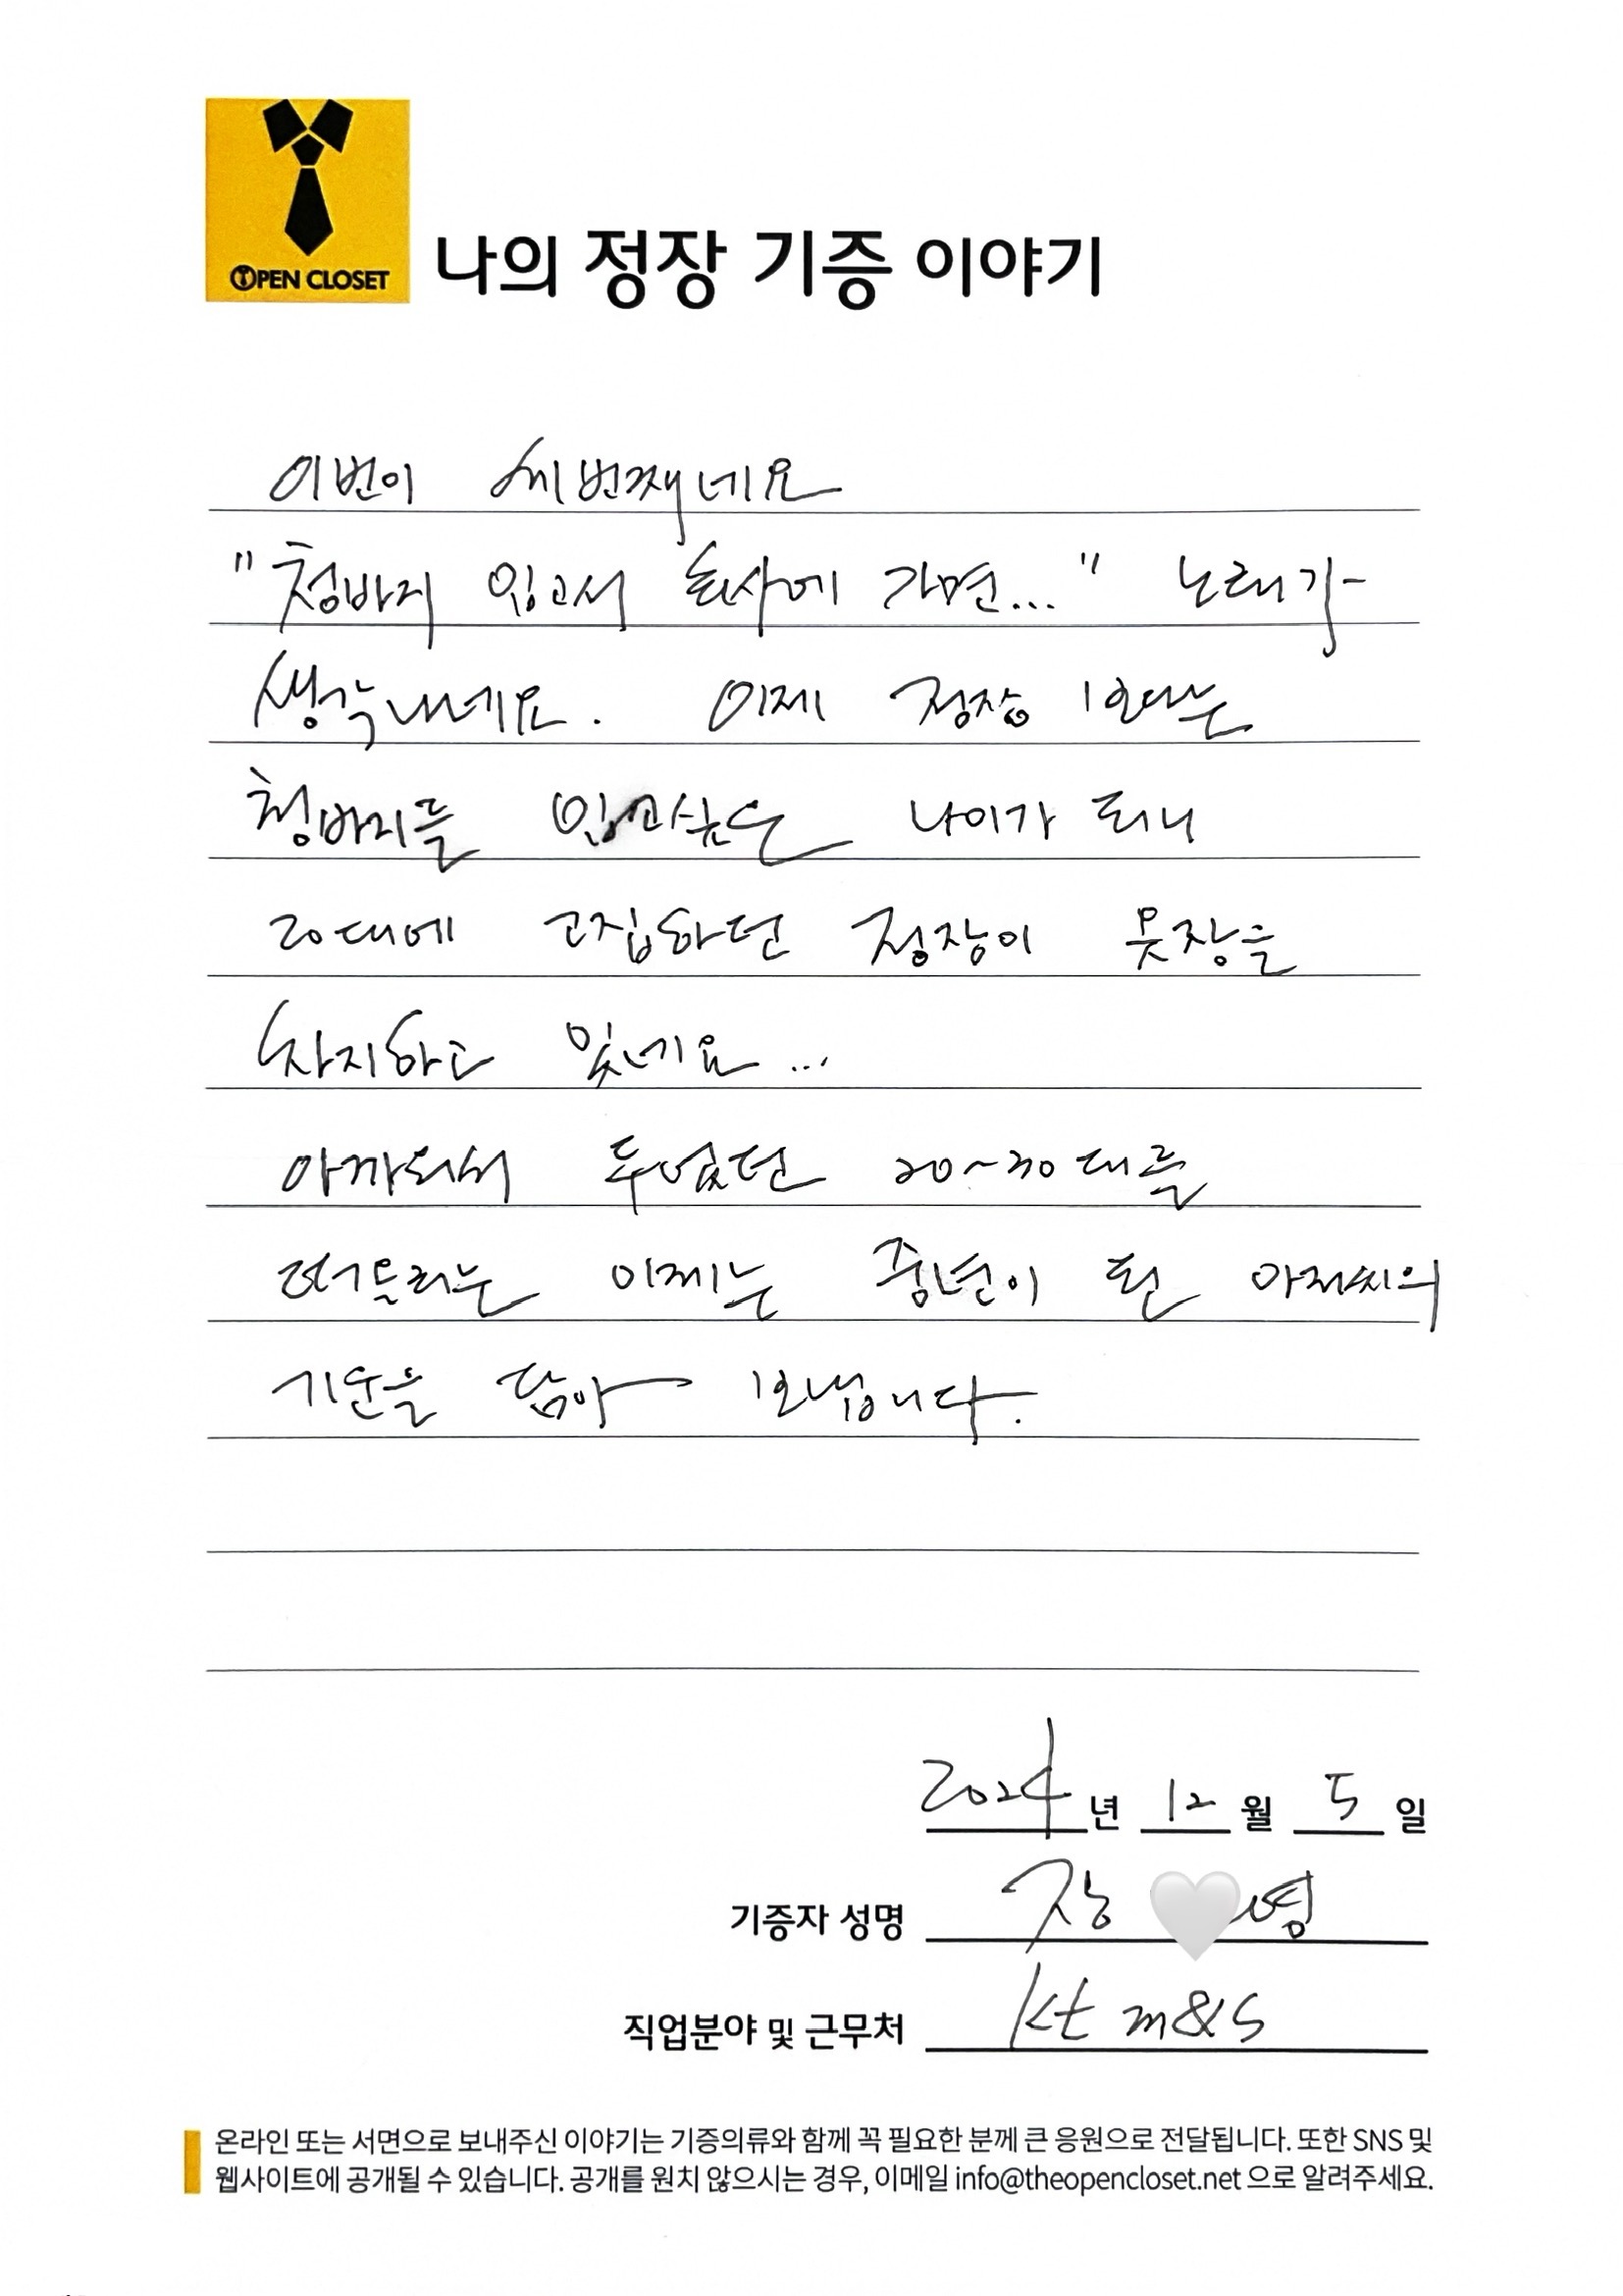 OPEN CLOSET
나의 정장 기증 이야기
이번이 세번째네요
"청바지 입고서 회사에 가면..." 노래가
생각나네요. 이제 정장 보다는
청바지를 입고싶은 나이가 되니
20대에 고집하던 정장이 옷장을
차지하고 있네요...
아까워서 두었던 20~30대를
떠올리는 이제는 중년이 된 아저씨의
기운을 담아 보냅니다.
2024년 12월 5일
기증자 성명 장 🤍영
직업분야 및 근무처 kt m&s
온라인 또는 서면으로 보내주신 이야기는 기증의류와 함께 꼭 필요한 분께 큰 응원으로 전달됩니다. 또한 SNS 및
웹사이트에 공개될 수 있습니다. 공개를 원치 않으시는 경우, 이메일 info@theopencloset.net 으로 알려주세요.